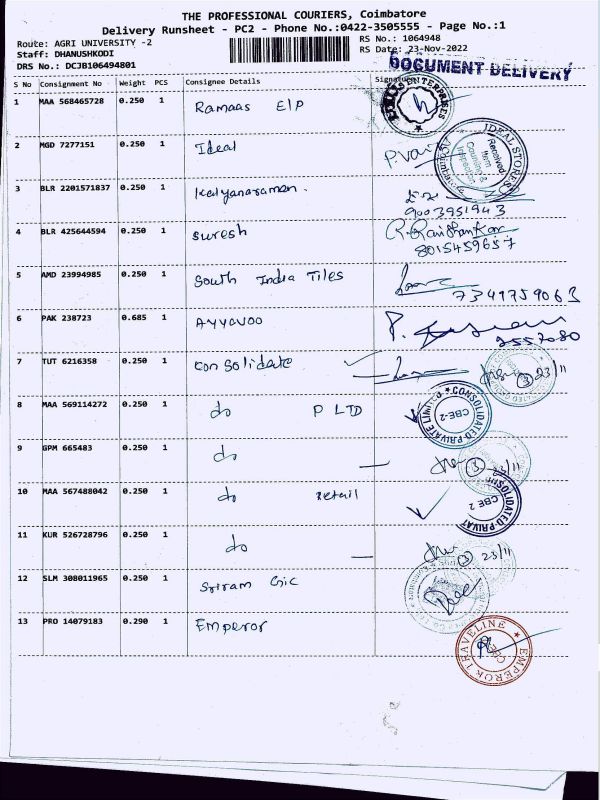 THE PROFESSIONAL COURIERS, Coimbatore
Delivery Runsheet - PC2 - Phone No.:0422-3505555 - Page No.:1
Route: AGRI UNIVERSITY -2 RS No.: 1064948
Staff: DHANUSHKODI RS Date: 23-Nov-2022
DRS No.: DCJB106494801 DOCUMENT DELIVERY
S No Consignment No Weight PCS Consignee Details Signature
1 MAA 568465728 0.250 1 Ramaas E/P ENTERPRISES
2 MGD 7277151 0.250 1 Ideal IDEAL STORES Received
3 BLR 2201571837 0.250 1 Kalyanaraman.
9003951943
4 BLR 425644594 0.250 1 Suresh R. Ravi Shankar
8015459657
5 AMD 23994985 0.250 1 South India Tiles
7341759063
6 PAK 238723 0.685 1 Ayyavoo
7 TUT 6216358 0.250 1 Consolidate 23/11
8 MAA 569114272 0.250 1 do P LTD CONSOLIDATED PRIVATE LIMITED CBE-2
9 GPM 665483 0.250 1 do 23/11
10 MAA 567488042 0.250 1 do retail CONSOLIDATED PRIVAT CBE 2
11 KUR 526728796 0.250 1 do 23/11
12 SLM 308011965 0.250 1 Sriram Gic
13 PRO 14079183 0.290 1 Emperor EMPEROR TRAVELINE